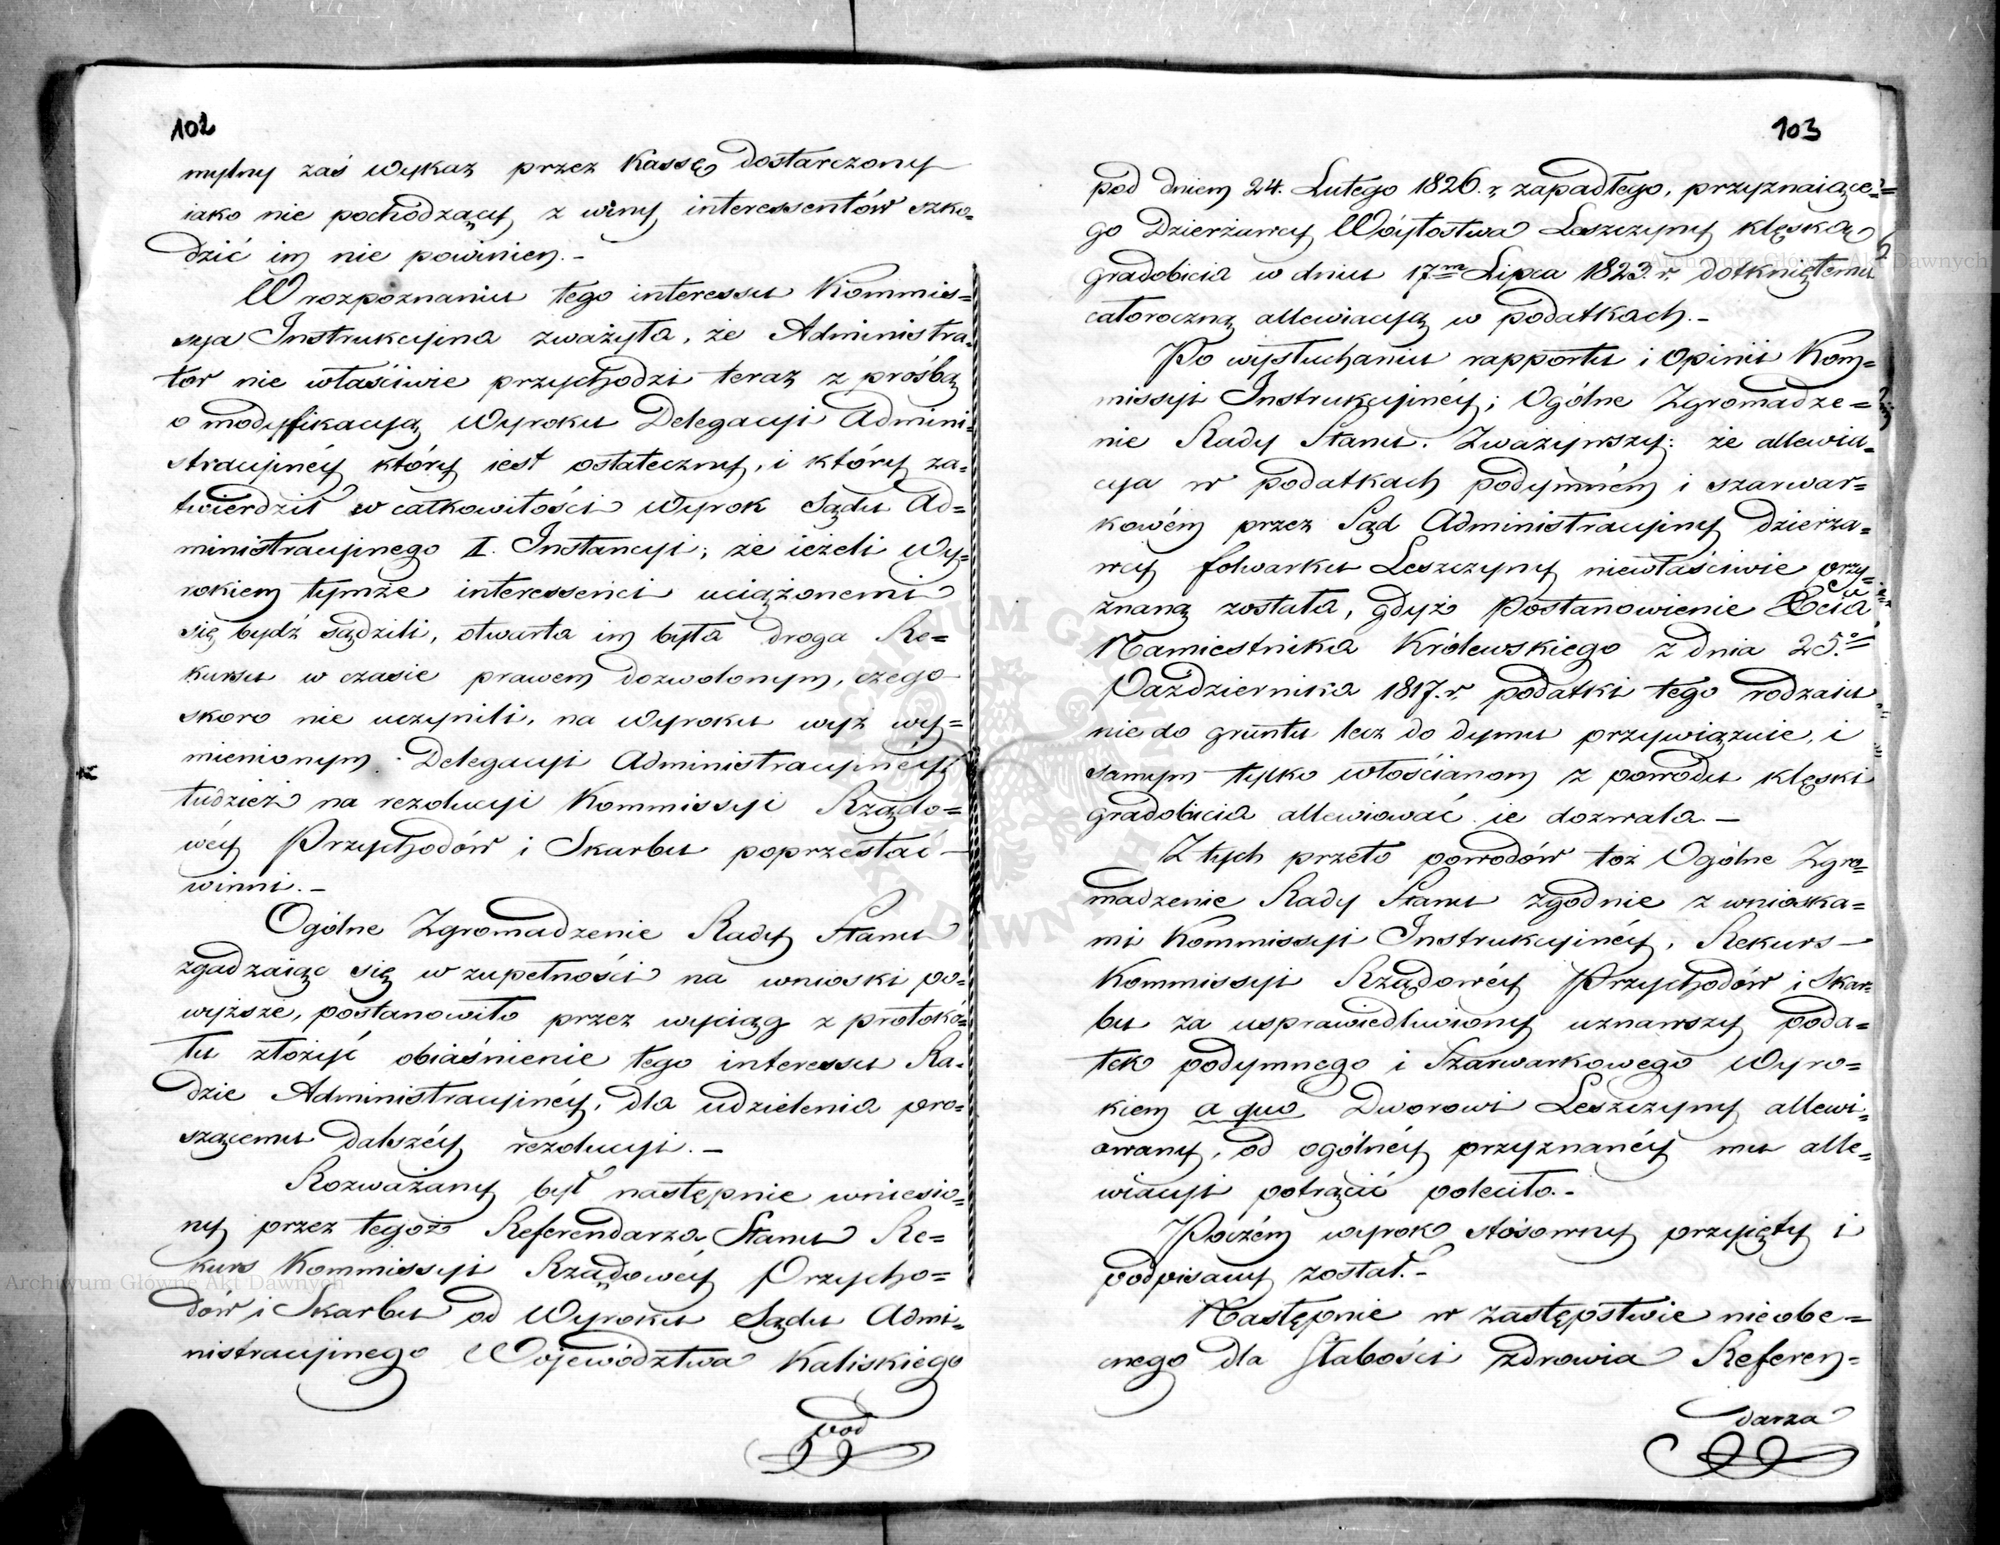 102
mylny zaś wykaz przez Kassę dostarczony
iako nie pochodzący z winy interessentów szko-
dzić im nie powinien.-
W rozpoznaniu tego interessu Kommis=
syia Instrukcyina zważyła, że Administra-
tor nie właściwie przychodzi teraz z prośbą
o modyfikacyą Wyroku Delegacyi Admini-
stracyinéy który iest ostateczny, i który za-
twierdził w całkowitości Wyrok Sądu Ad=
ministracyinego I. Instancyi; że ieżeli Wy=
rokiem tymże interessenci uciążonemi
się bydź sądzili, otwarta im była droga Re=
kursu w czasie prawem dozwolonym, czego
skoro nie uczynili, na Wyroku wyż wy=
mienionym Delegacyi Administracyinéy
tudzież na rezolucyi Kommissyi Rządo=
wéy Przychodów i Skarbu poprzestać
winni.-
Ogólne Zgromadzenie Rady Stanu
zgadzaiąc się w zupełności na wnioski po-
wyższe, postanowiło przez wyciąg z protokó-
łu złożyć obiaśnienie tego interessu Ra-
dzie Administracyinéy, dla udzielenia pro-
szącemu dalszéy rezolucyi.-
Rozważany był następnie wniesio-
ny przez tegoż Referendarza Stanu Re=
kurs Kommissyi Rządowéy Przycho=
dów i Skarbu od Wyroku Sądu Admi-
nistracyinego Województwa Kaliskiego
pod
103
pod dniem 24. Lutego 1826. r. zapadłego, przyznaiące=
go Dzierżawcy Wóytostwa Leszczyny klęską
gradobicia w dniu 17m Lipca 1823. r. dotkniętemu
całoroczną allewiacyą w podatkach.-
Po wysłuchaniu rapportu i Opinii Kom=
missyi Instrukcyinéy; Ogólne Zgromadze=
nie Rady Stanu. Zważywszy: że allewia-
cya w podatkach podymném i szarwar=
kowém przez Sąd Administracyiny dzierża=
wcy folwarku Leszczyny niewłaściwie przy=
znaną została, gdyż Postanowienie Xcia
Namiestnika Królewskiego z dnia 25.o
Października 1817. r. podatki tego rodzaiu
nie do gruntu lecz do dymu przywiązuie, i
samym tylko włościanom z powodu klęski
gradobicia allewiować ie dozwala.-
Z tych przeto powodów toż Ogólne Zgro-
madzenie Rady Stanu zgodnie z wnioska=
mi Kommissyi Instrukcyinéy, Rekurs
Kommissyi Rządowéy Przychodów i Skar-
bu za usprawiedliwiony uznawszy poda=
tek podymnego i Szarwarkowego Wyro=
kiem a quo Dworowi Leszczyny allewi=
owany, od ogólnéy przyznanéy mu alle-
wiacyi potrącić poleciło.-
Poczém wyrok stosowny przyięty i
podpisany został.-
Następnie w zastępstwie nieobe=
cnego dla słabości zdrowia Referen=
darza
Archiwum Główne Akt Dawnych
Archiwum Główne Akt Dawnych